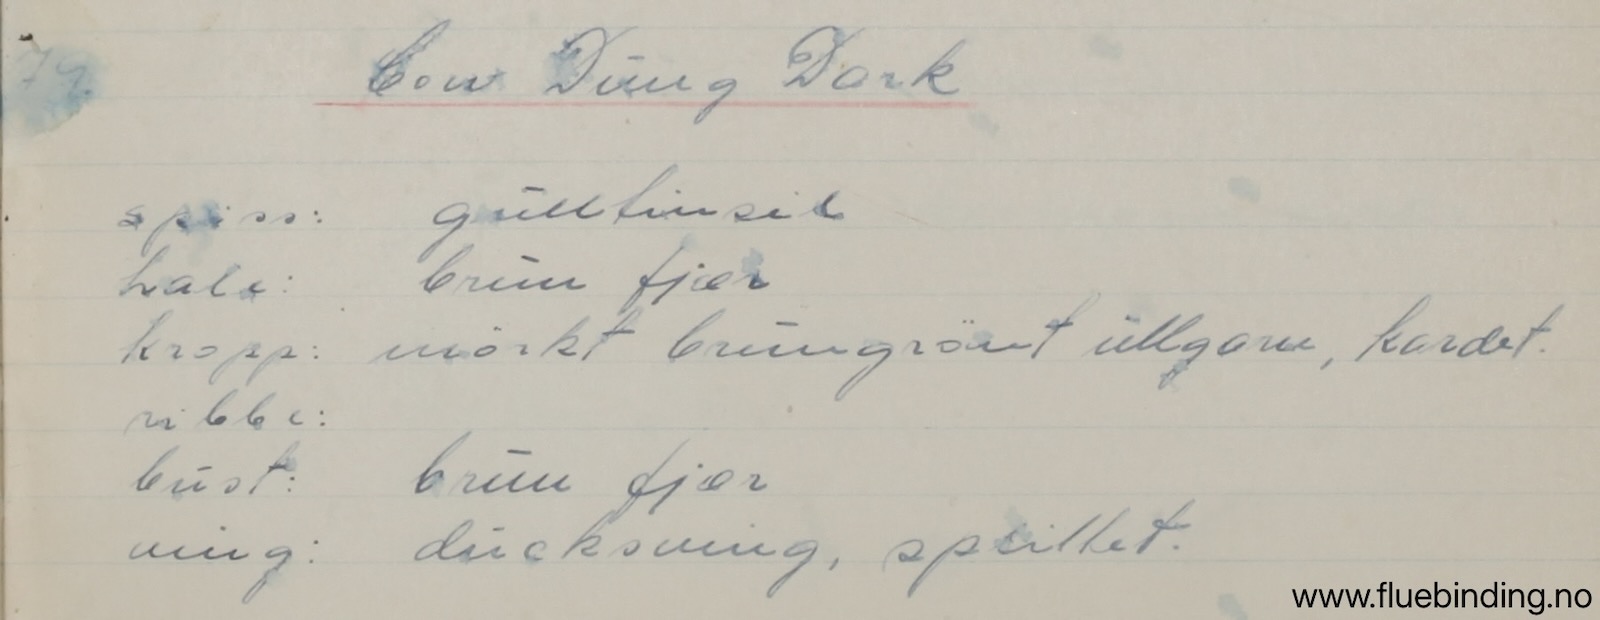 74.
Cow Dung Dark
spiss: gulltinsel
hale: brun fjær
kropp: mörkt brungrönt ullgarn, kardet.
ribbe:
bust: brun fjær
ving: ducksving, splittet.
www.fluebinding.no